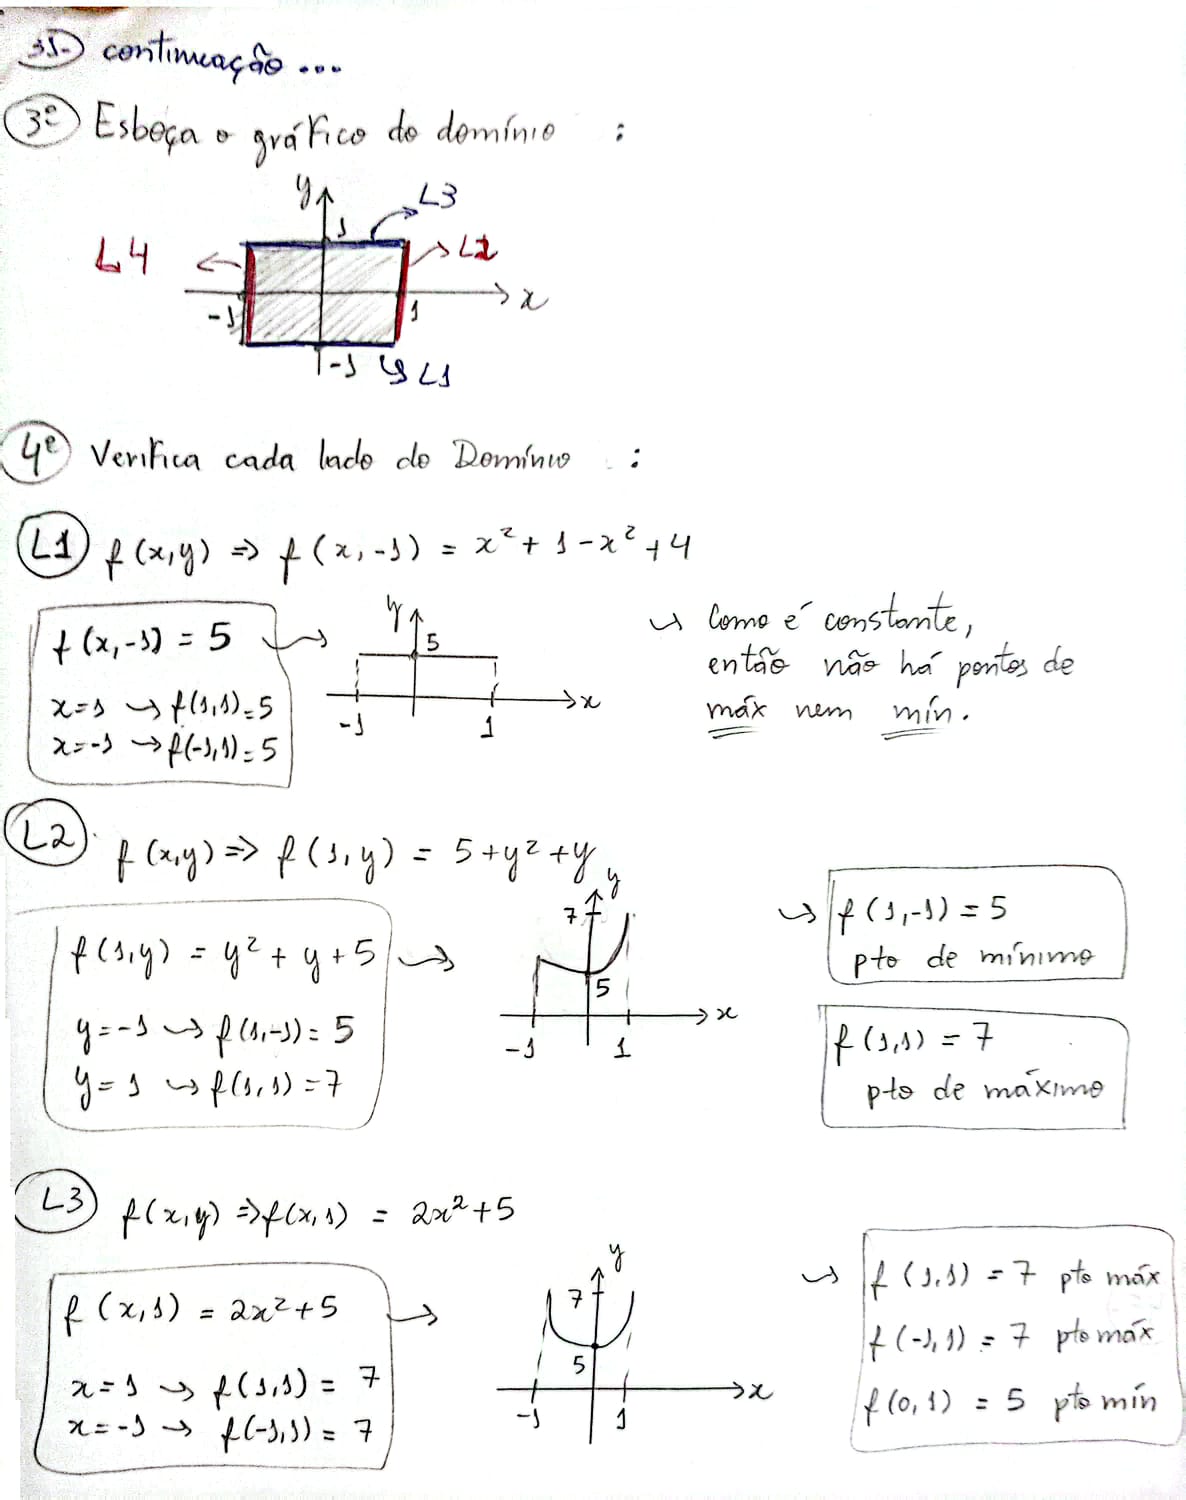 31-) continuação ...
3º Esboça o gráfico do domínio :
y
1
L3
L4
L2
-1
1
x
-1
L1
4º Verifica cada lado do Domínio :
L1 f(x,y) => f(x,-1) = x² + 1 - x² + 4
f(x,-1) = 5
x=1 → f(1,1)=5
x=-1 → f(-1,1)=5
y
5
x
-1
1
↪ Como é constante,
então não há pontos de
máx nem mín.
L2 f(x,y) => f(1,y) = 5+y²+y
f(1,y) = y² + y + 5
y=-1 → f(1,-1) = 5
y=1 → f(1,1) = 7
y
7
5
x
-1
1
↪ f(1,-1) = 5
pto de mínimo
f(1,1) = 7
pto de máximo
L3 f(x,y) => f(x,1) = 2x²+5
f(x,1) = 2x²+5
x=1 → f(1,1) = 7
x=-1 → f(-1,1) = 7
y
7
5
x
-1
1
↪ f(1,1) = 7 pto máx
f(-1,1) = 7 pto máx
f(0,1) = 5 pto mín